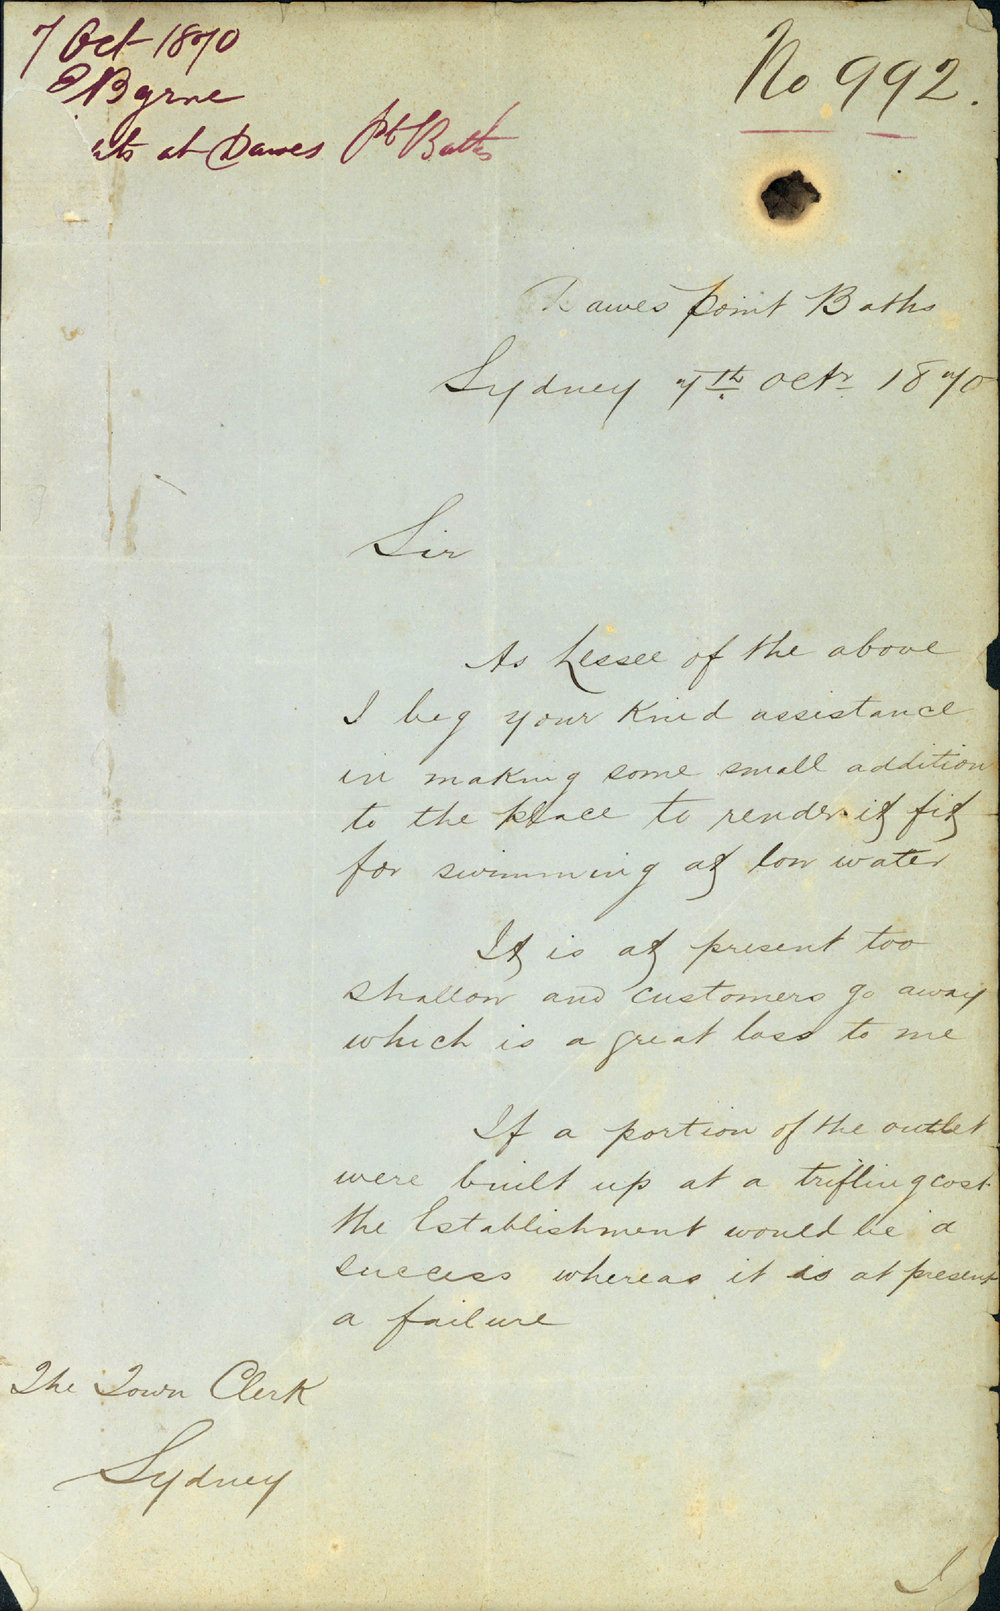 7 Oct 1870
E Byrne
at Dawes Pt Baths
No 992.
Dawes point Baths
Sydney 7th Octr 1870
Sir
As Lessee of the above
I beg your Kind assistance
in making some small addition
to the place to render it fit
for swimming at low water
It is at present too
shallow and customers go away
which is a great loss to me
If a portion of the outlet
were built up at a trifling cost
the Establishment would be a
success whereas it is at present
a failure
The Town Clerk
Sydney
I